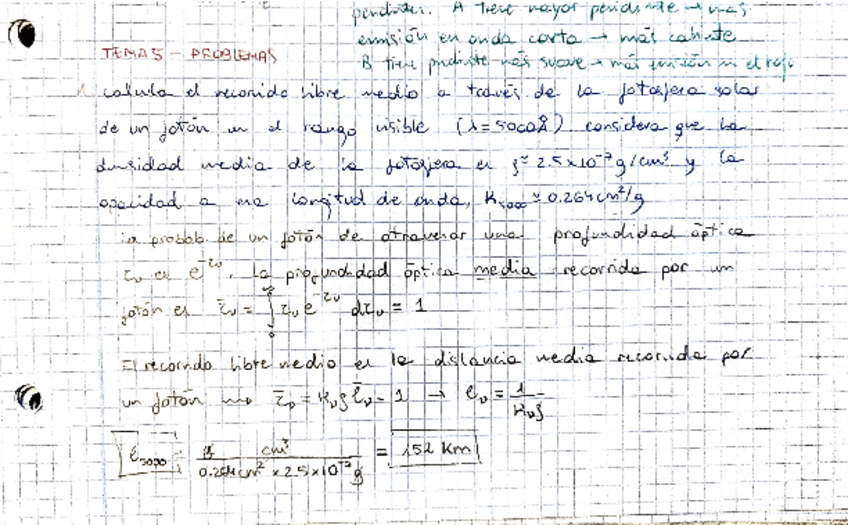 pendiente. A tiene mayor pendiente → más
emisión en onda corta → más caliente
B tiene pendiente más suave → más emisión en el rojo
TEMA 5 - PROBLEMAS
calcula el recorrido libre medio a través de la fotosfera solar
de un fotón en el rango visible (λ=5000Å) considera que la
densidad media de la fotosfera es ρ≈2.5×10⁻⁷g/cm³ y la
opacidad a esa longitud de onda, K₅₀₀₀ ≈ 0.264cm²/g
la probab. de un fotón de atravesar una profundidad óptica
τν es e^-τν. La profundidad óptica media recorrida por un
fotón es τ̄ν = ∫ τν e^-τν dτν = 1
El recorrido libre medio es la distancia media recorrida por
un fotón τ̄ν = κνρl̄ν = 1 → lν = 1/κνρ
l̄₅₀₀₀ = cm³ / 0.264cm² × 2.5×10⁻⁷g = 152 Km